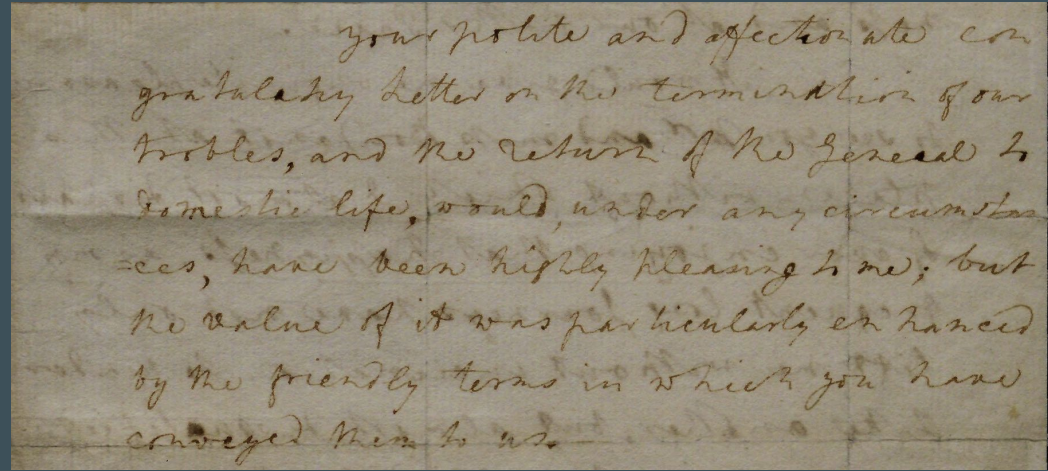 your polite and affectionate con
gratulatory Letter on the termination of our
trobles, and the return of the General to
domestic life, would, under any circumstan
=ces, have been highly pleasing to me; but
the value of it was particularly enhanced
by the friendly terms in which you have
conveyed them to us.